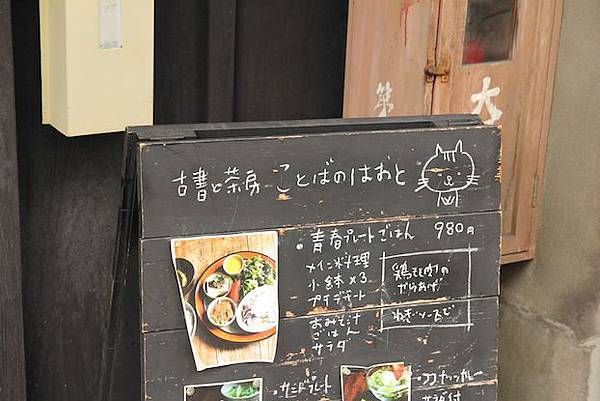 第
大
古書と茶房 ことばのはおと
・青春プレートごはん 980円
メイン料理
小鉢×3
プチデザート
おみそ汁
ごはん
サラダ
鶏もも肉の
からあげ
ねぎソースで
・サンドプレート
・ココナッツカレー
サラダ付